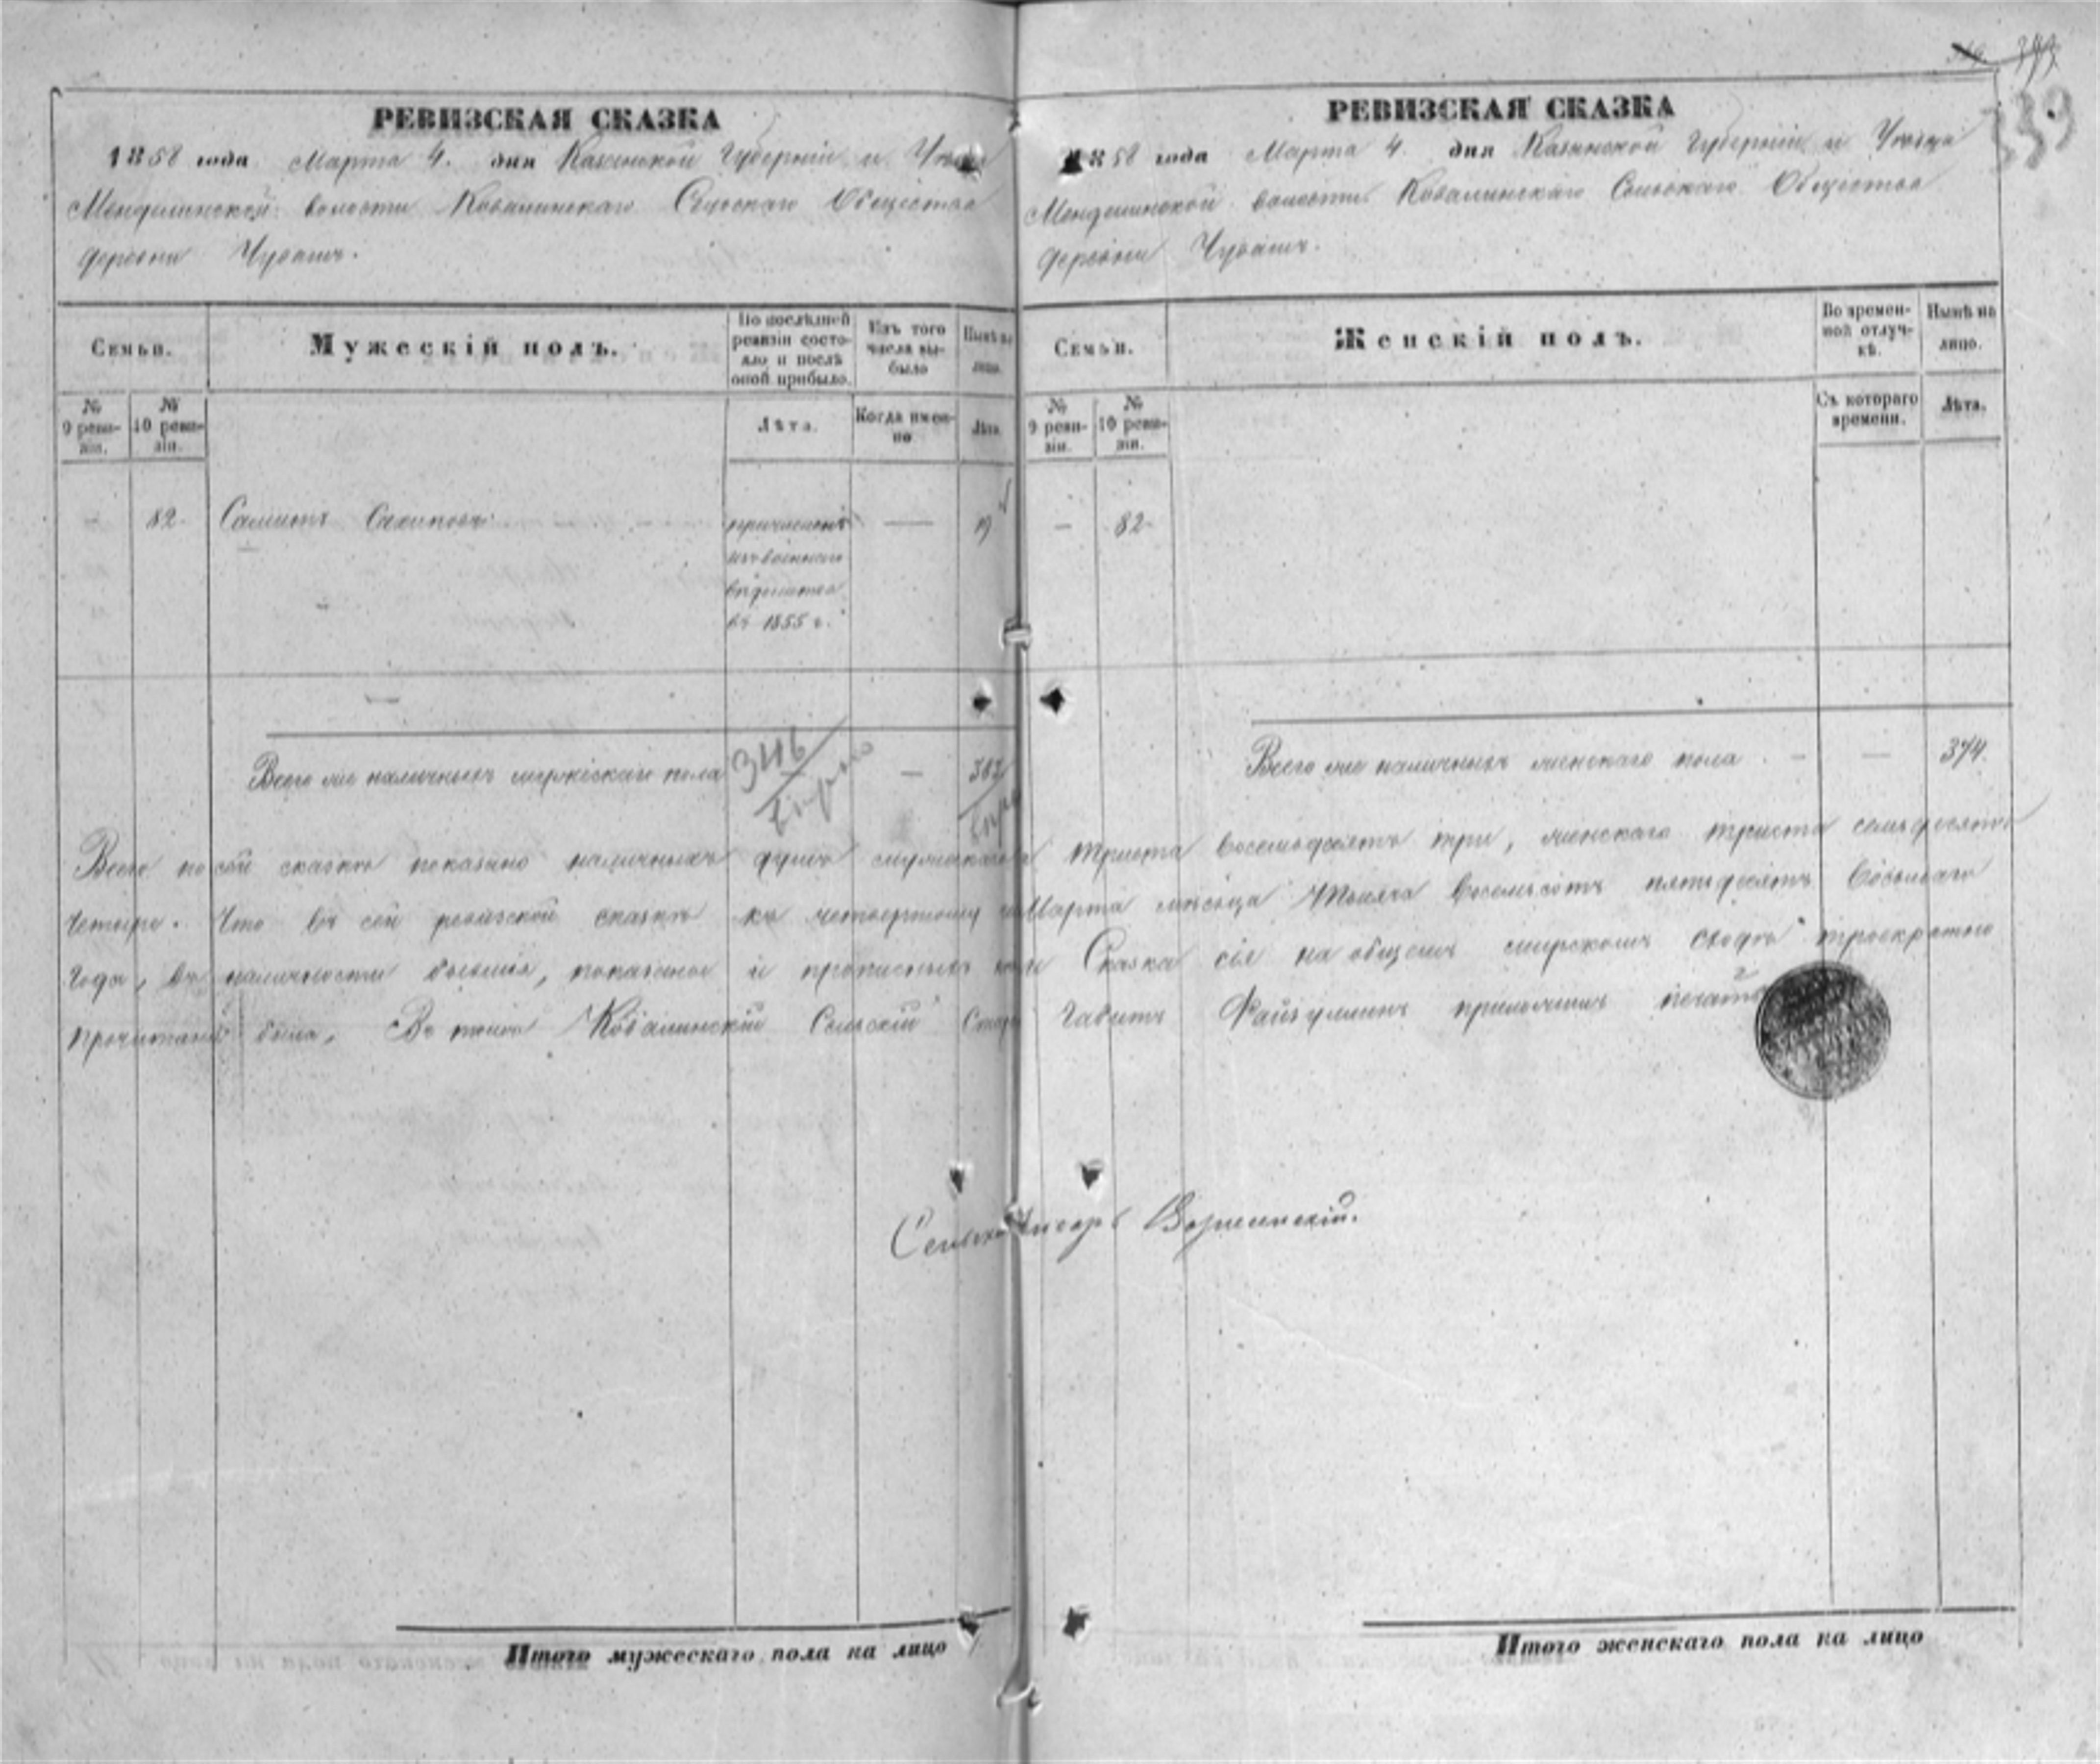 339
РЕВИЗСКАЯ СКАЗКА
1858 года Марта 4. дня Казанской Губерніи и Уѣзда
Менделинской волости Ковалинскаго Сельскаго Общества
деревни Чувашъ.
Семьи.
Мужескій полъ.
По послѣдней ревизіи состояло и послѣ оной прибыло.
Изъ того числа выбыло
Нынѣ на лицо.
№ 9 ревизіи.
№ 10 ревизіи.
Лѣта.
Когда именно
Лѣта.
— 82. Салихъ причисленъ — 19
изъ военнаго
вѣдомства
въ 1855 г.
Всего же наличныхъ мужескаго пола — 383
РЕВИЗСКАЯ СКАЗКА
1858 года Марта 4. дня Казанской Губерніи и Уѣзда
Менделинской волости Ковалинскаго Сельскаго Общества
деревни Чувашъ.
Семьи.
Женскій полъ.
Во временной отлучкѣ.
Нынѣ на лицо.
№ 9 ревизіи.
№ 10 ревизіи.
Съ котораго времени.
Лѣта.
— 82
Всего же наличныхъ женскаго пола — — 374.
Всего по сей сказкѣ показано наличныхъ душъ мужескаго триста восемьдесятъ три, женскаго триста семьдесятъ
четыре. Что въ сей ревизской сказкѣ къ четвертому Марта мѣсяца Тысяча восемьсотъ пятьдесятъ восьмаго
года, въ наличности бывшія, показаны и прописныхъ Сказка сія на общемъ мирскомъ сходѣ троекратно
прочитана была, Въ томъ Ковалинскій Сельскій Габитъ Файзуллинъ приложилъ печать
Сельскій Писарь
Итого мужескаго пола на лицо
Итого женскаго пола на лицо